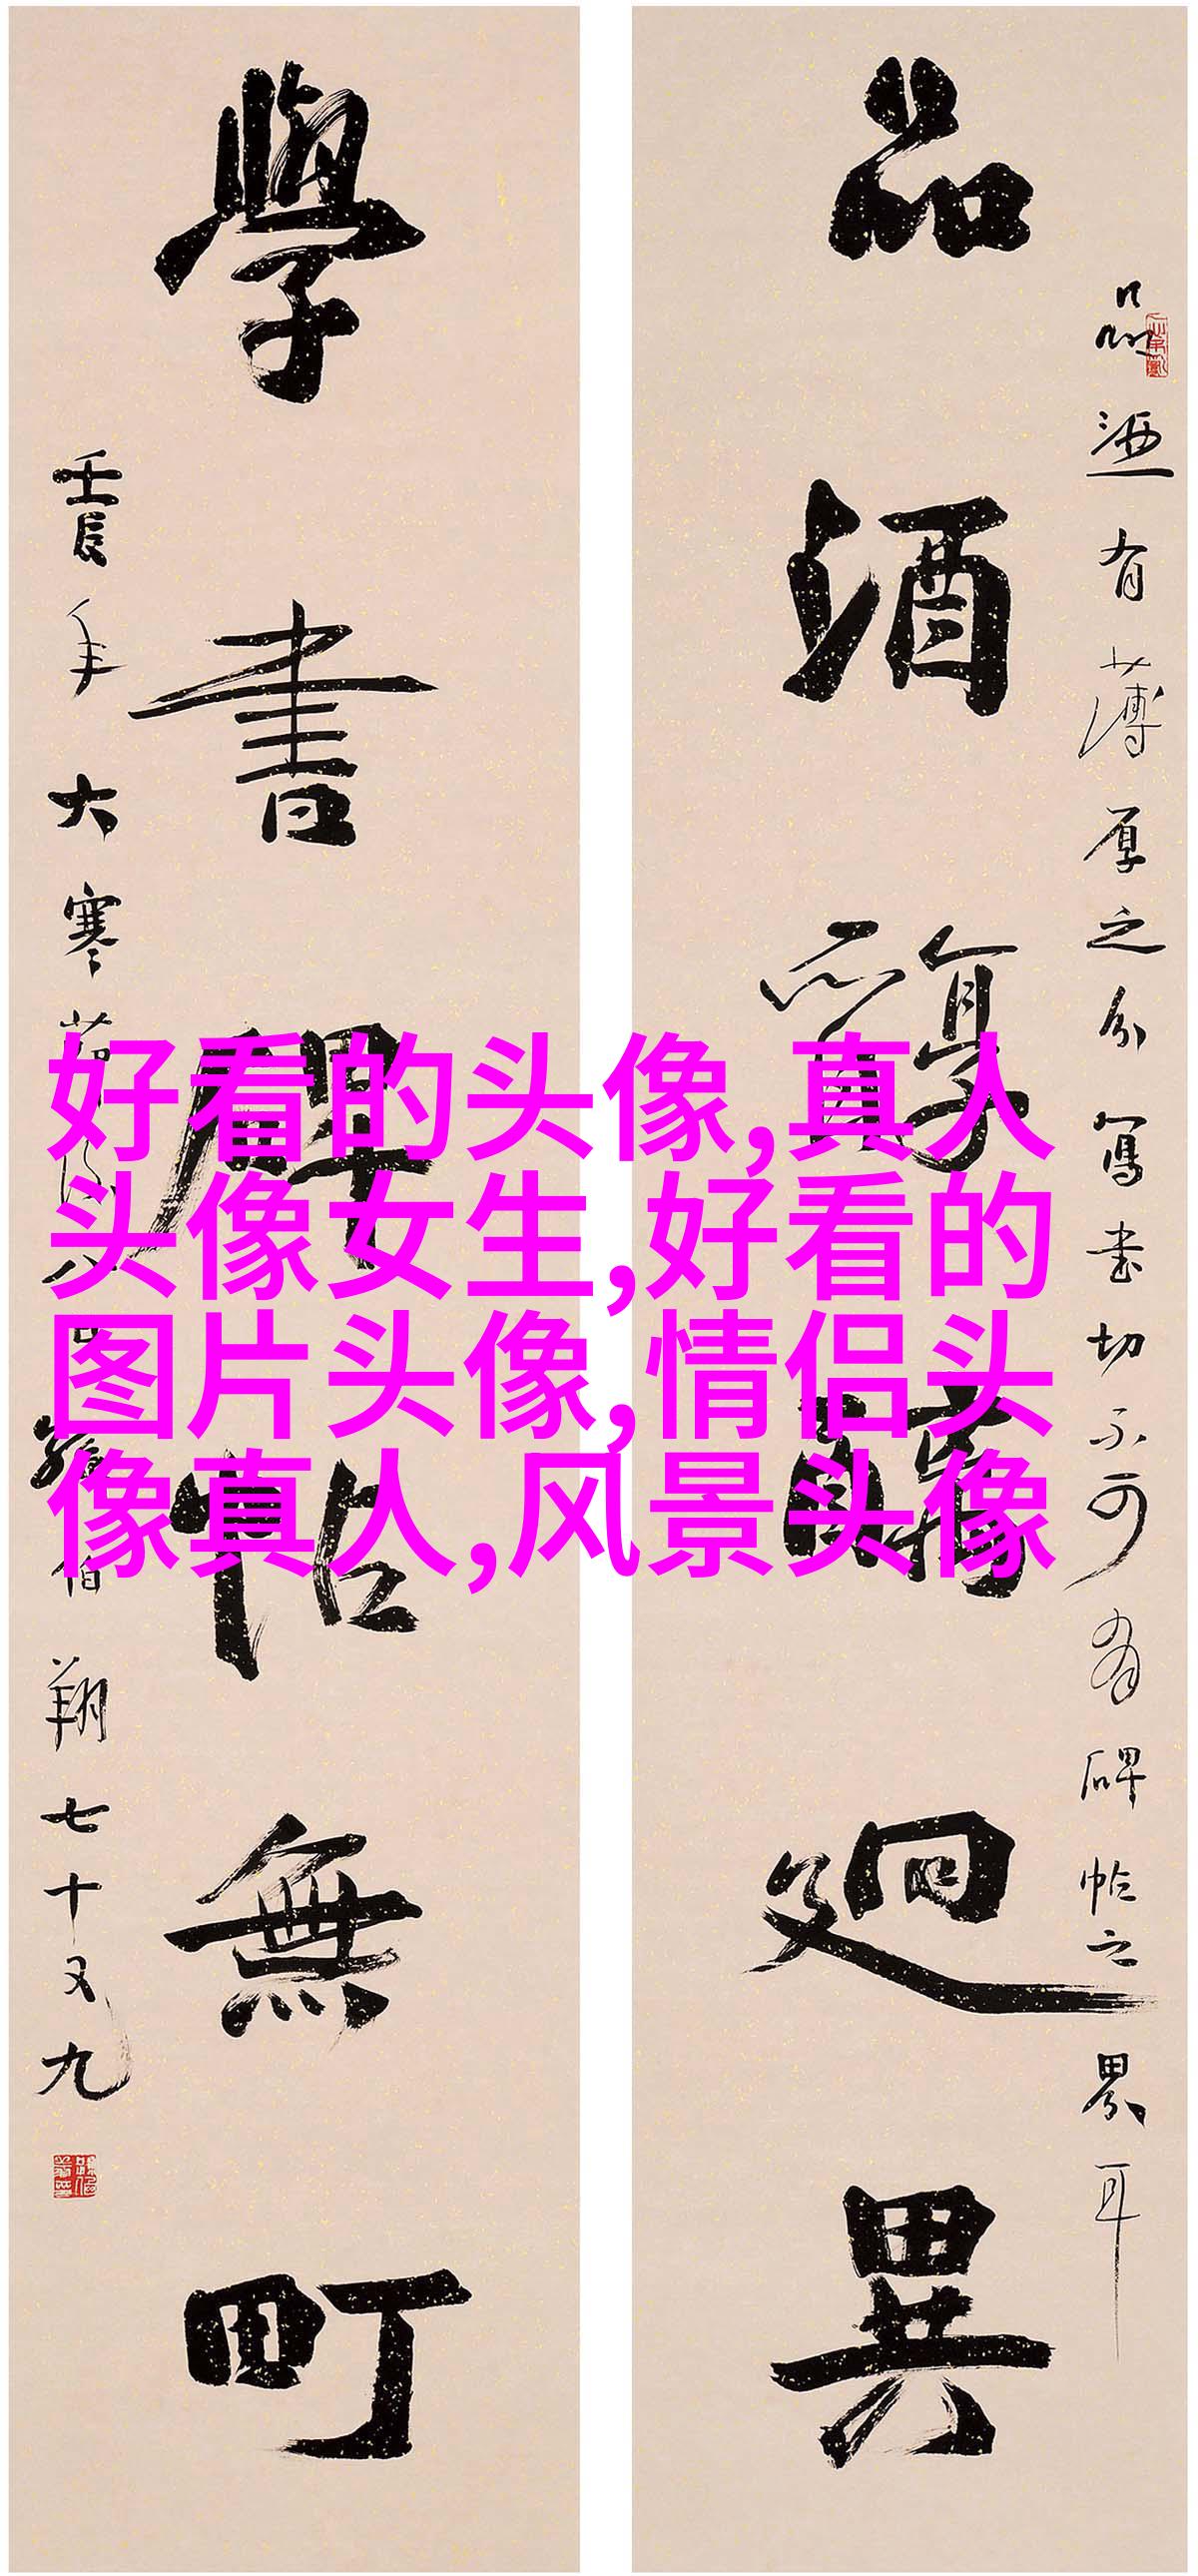 品酒醇醨迥異
品酒有薄厚之分寫書切不可有碑帖之界耳
學書碑帖無町
壬辰年大寒
翔七十又九
好看的头像,真人
头像女生,好看的
图片头像,情侣头
像真人,风景头像